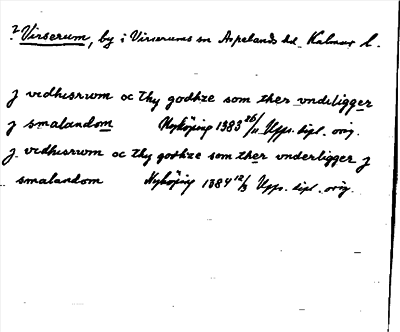 ? Virserum, by i Virserums sn Aspelands hd. Kalmar l.
j vedhisrwm oc thy godhze som ther vndeligger
j smalandom Nyköping 1383 26/11 Upps. dipl. orig.
j vedhisrwm oc thy godhze som ther vnderligger j
smalandom Nyköping 1384 12/3 Upps. dipl. orig.